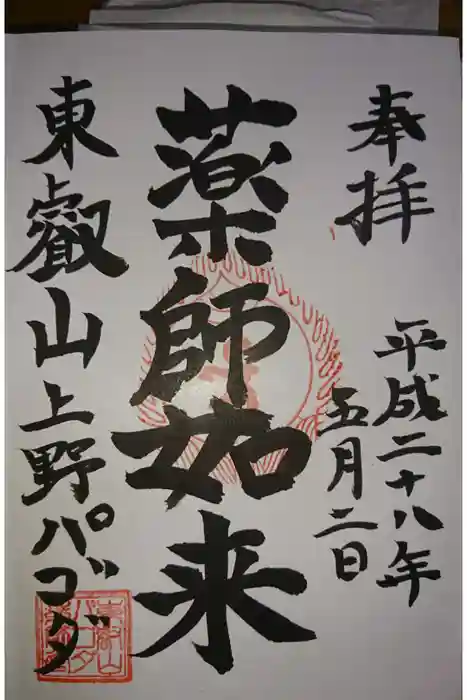 奉拝
平成二十八年
五月二日
薬師如来
東叡山上野パゴダ